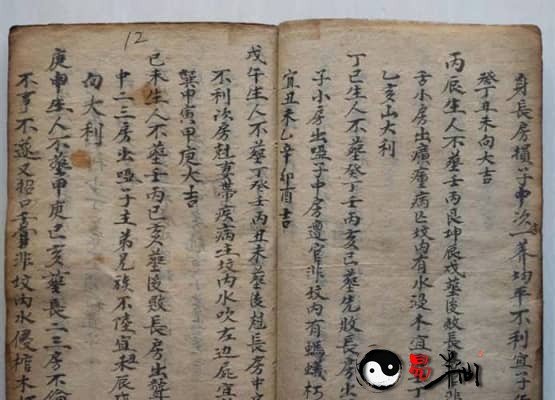 身長房損子中次一葬均平不利宜子
癸丁丑未向大吉
丙辰生人不葬壬丙艮坤辰戌葬後敗長
子小房出瘟病亡坟内有水浸木宜
乙亥山大利
丁巳生人不葬癸丁壬丙亥巳葬先敗長房出
子小房出哑子中房遭官非坟内有螞蟻朽
宜丑未乙辛卯酉吉
12
戊午生人不葬丁癸壬丙丑未葬後尅長房中
不利次房尅妻帶疾病生坟内水吹左边屍宜
艮甲寅甲庚大吉
己未生人不葬壬丙巳亥葬後敗長房出
中二三房出哑子主弟兄族不陸宜辰
向大利
庚申生人不葬甲庚巳亥葬長二三房不
不亨不遂又招口舌官非坟内水侵棺木
易